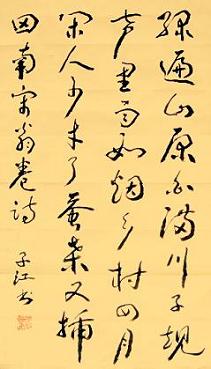 绿遍山原白满川子规
声里雨如烟乡村四月
闲人少才了蚕桑又插
田南宋翁卷诗
子江书